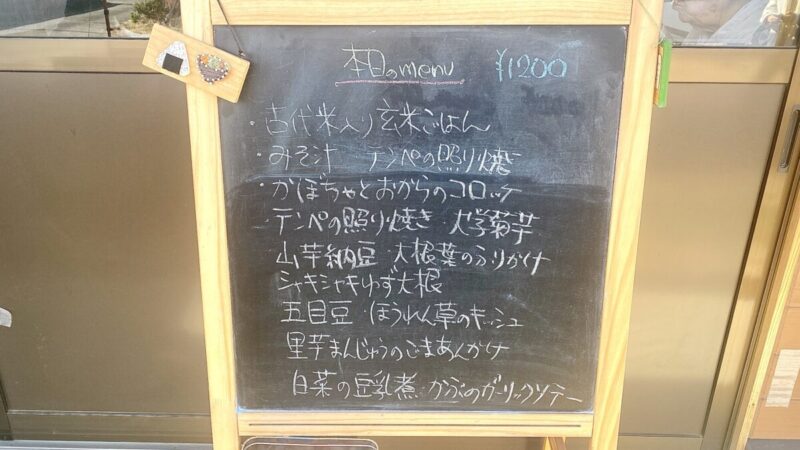 本日のmenu ¥1200
・古代米入り玄米ごはん
・みそ汁 テンペの照り焼き
・かぼちゃとおからのコロッケ
・テンペの照り焼き 大学菊芋
山芋納豆 大根葉のふりかけ
シャキシャキゆず大根
五目豆 ほうれん草のキッシュ
里芋まんじゅうのごまあんかけ
白菜の豆乳煮 かぶのガーリックソテー